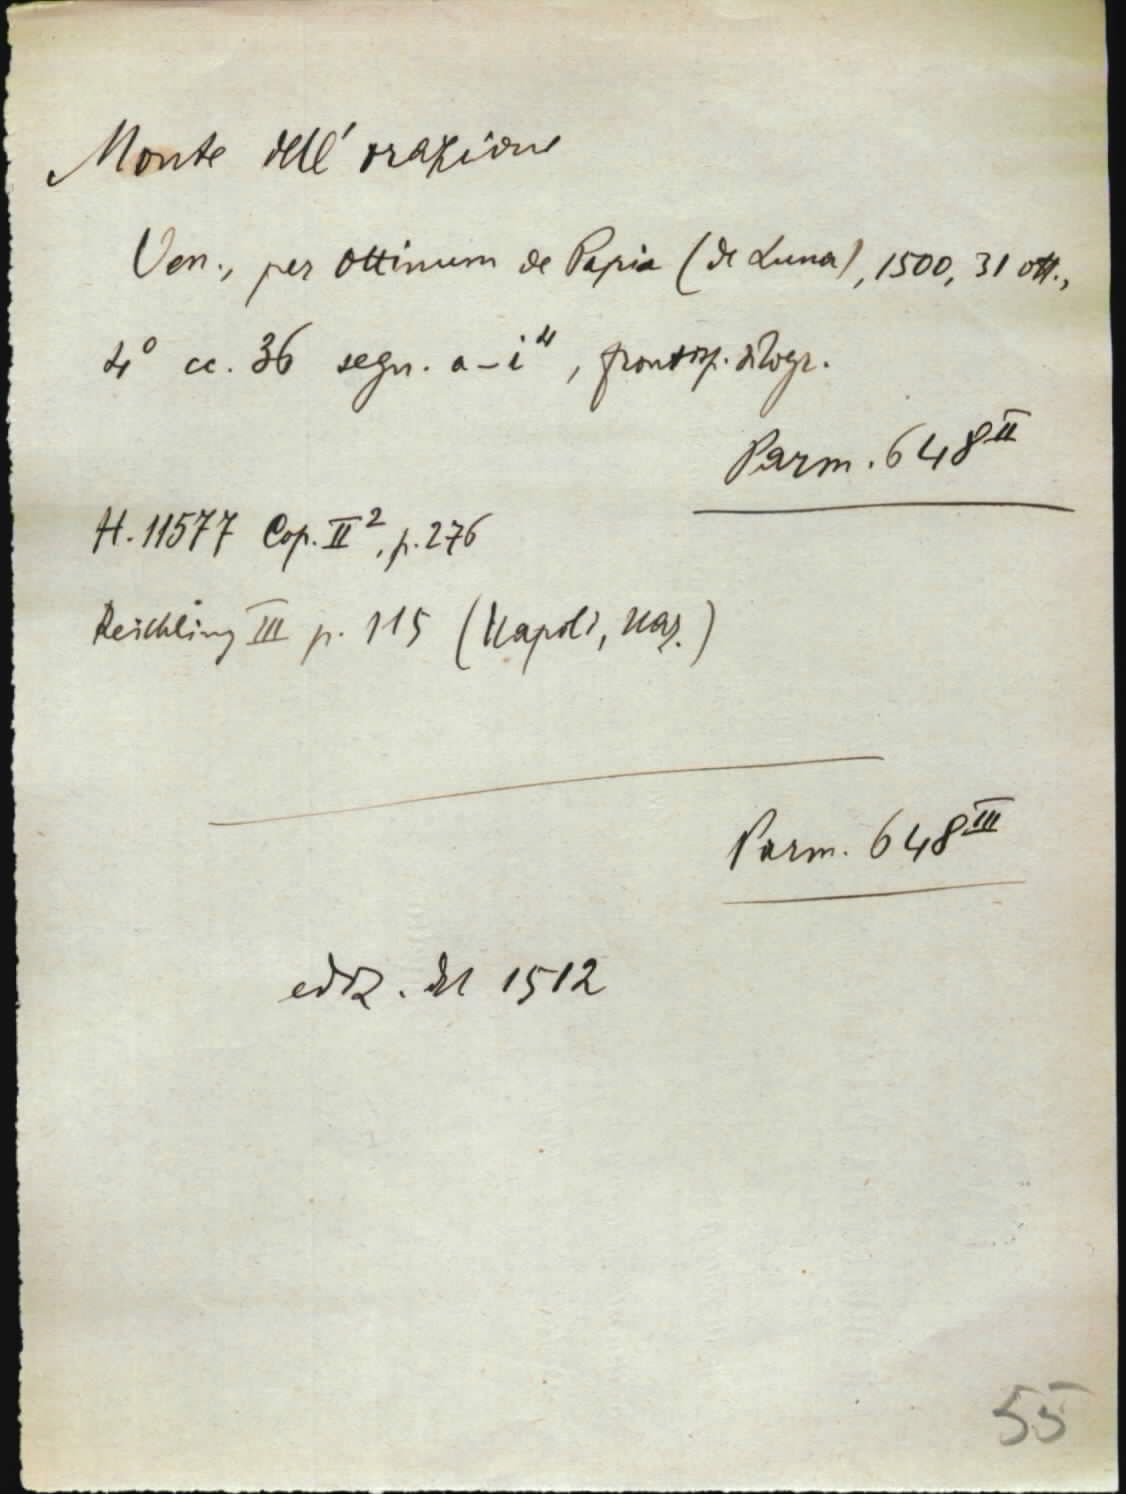 Monte dell'orazione
Ven., per Ottinum de Papia (de Luna), 1500, 31 ott.,
4° cc. 36 segn. a-i⁴, frontisp. silogr.
Parm. 648ᴵᴵ
H. 11577 Cop. II², p. 276
Reichling III p. 115 (Napoli, Naz.)
Parm. 648ᴵᴵᴵ
ediz. del 1512
55